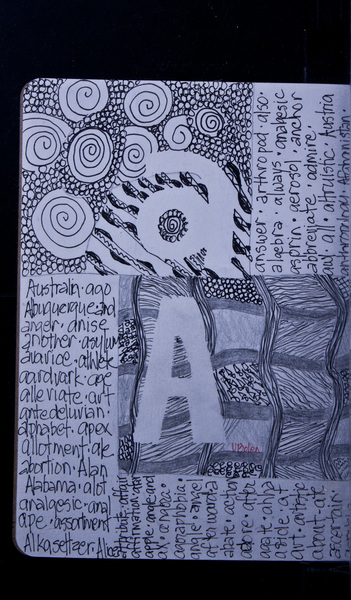 a
answer · arthropod · also
algebra · always · analgesic
aspirin · aerosol · anchor
abbreviate · admire ·
all · altruistic · Austria
Afghanistan
Australia · ago
Albuquerque and
anger · anise
another · asylum
avarice ·
aardvark · ape
alleviate · art
antedeluvian ·
alphabet · apex
allotment · ale
abortion · Alan
Alabama · alot
analgesic · and
ape · assortment
Alkaseltzer · Alice
A
attribute ·
affirmation ·
apple · and
ax ·
agoraphobia ·
angle · angel
afterwards
abate · action
adore ·
agate ·
aside · at
art · attire
about · arc
ascertain